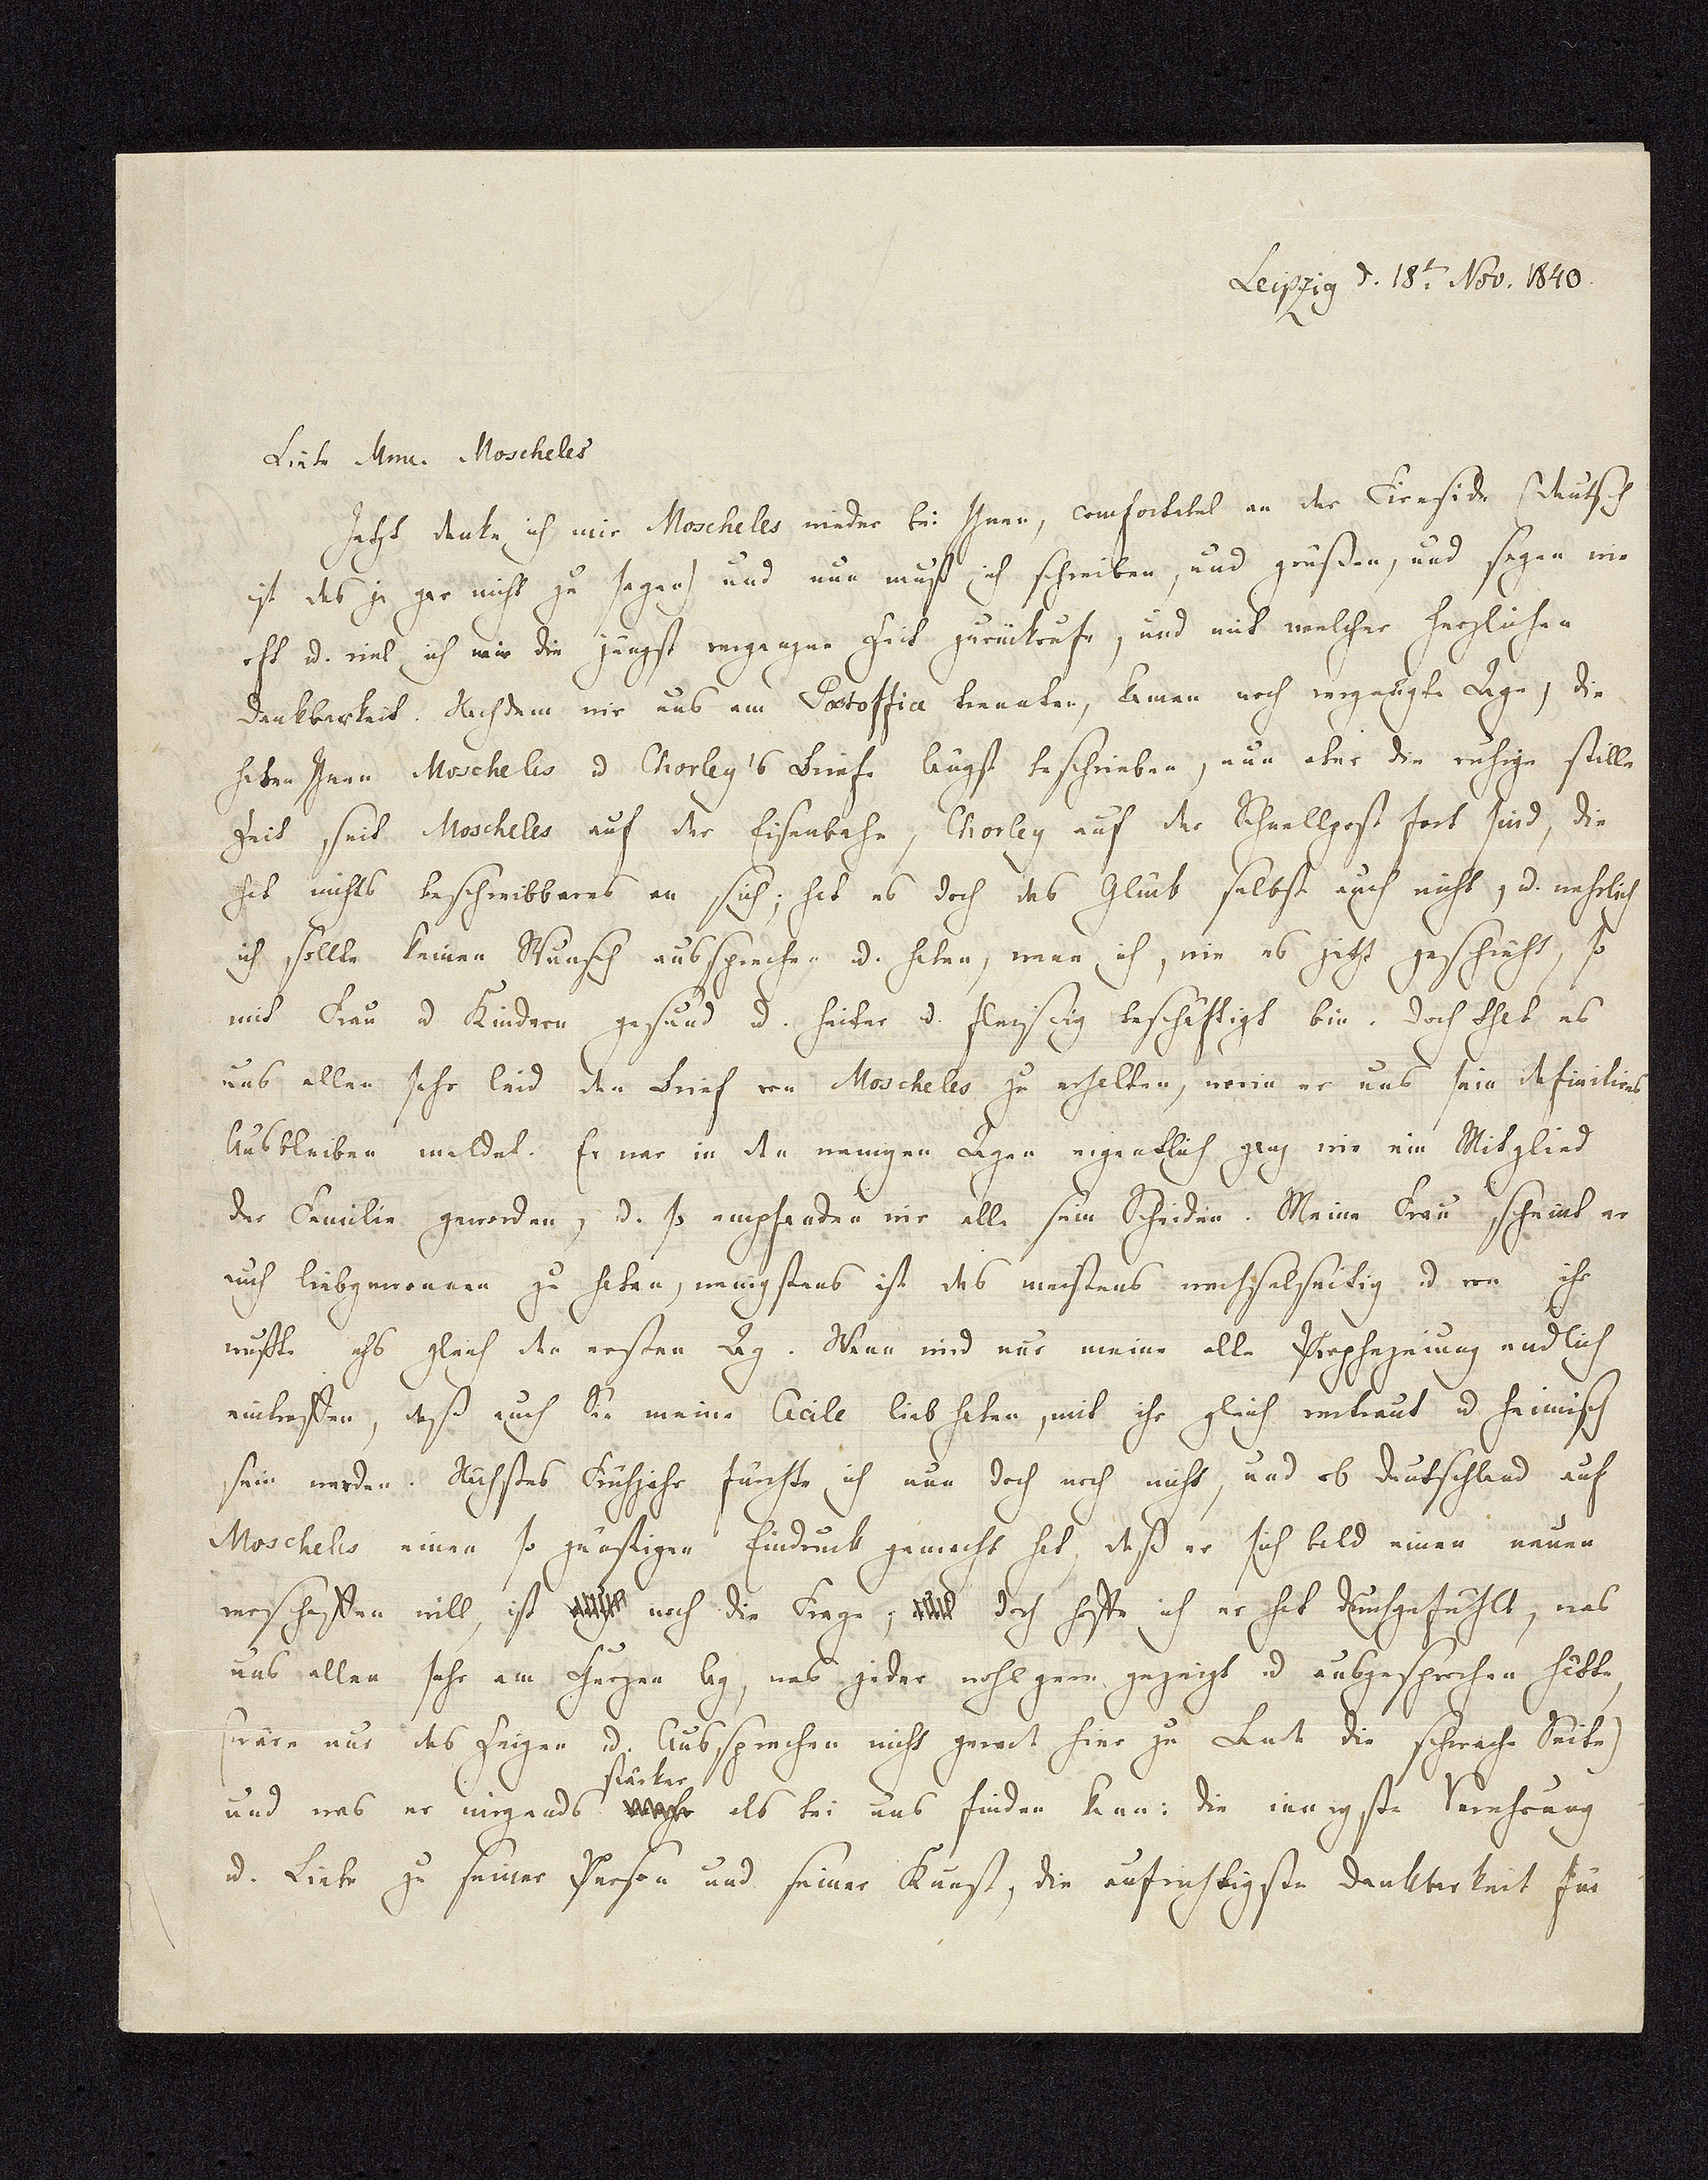 Leipzig d. 18t. Nov. 1840.
Liebe Mme. Moscheles
Jetzt denke ich mir Moscheles wieder bei Ihnen, comfortabel an der Fireside (deutsch
ist das ja gar nicht zu sagen) und nun muß ich schreiben, und grüßen, und sagen wie
oft u. viel ich mir die jüngst vergangne Zeit zurückrufe, und mit welcher herzlichen
Dankbarkeit. Nachdem wir uns am Postoffice trennten, kamen noch vergnügte Tage, die
haben Ihnen Moscheles u Chorley's Briefe längst beschrieben, nun aber die ruhige stille
Zeit, seit Moscheles auf der Eisenbahn, Chorley auf der Schnellpost fort sind, die
hat nichts beschreibbares an sich; hat es doch das Glück selbst auch nicht, u. wahrlich
ich sollte keinen Wunsch aussprechen u. haben, wenn ich, wie es jetzt geschieht, so
mit Frau u Kindern gesund u. heiter u. fleißig beschäftigt bin. Doch that es
uns allen sehr leid den Brief von Moscheles zu erhalten, worin er uns sein definitives
Ausbleiben meldet. Er war in den wenigen Tagen eigentlich ganz wie ein Mitglied
der Familie geworden, u. so empfanden wir alle sein Scheiden. Meine Frau scheint er
auch liebgewonnen zu haben, wenigstens ist das meistens wechselseitig u von ihr
wußte ichs gleich den ersten Tag. Wenn wird nur meine alte Prophezeiung endlich
eintreffen, daß auch Sie meine Cecile lieb haben, mit ihr gleich vertraut u heimisch
sein werden. Nächstes Frühjahr fürchte ich nun doch noch nicht, und ob Deutschland auf
Moscheles einen so günstigen Eindruck gemacht hat, daß er sich bald einen neuen
verschaffen will, ist noch die Frage; doch hoffe ich er hat durchgefühlt, was
uns allen sehr am Herzen lag, was jeder wohl gern gezeigt u ausgesprochen hätte,
(wäre nur das Zeigen u. Aussprechen nicht gerade hier zu Lande die schwache Seite)
und was er nirgends stärker als bei uns finden kann: die innigste Verehrung
u. Liebe zu seiner Person und seiner Kunst, die aufrichtigste Dankbarkeit für